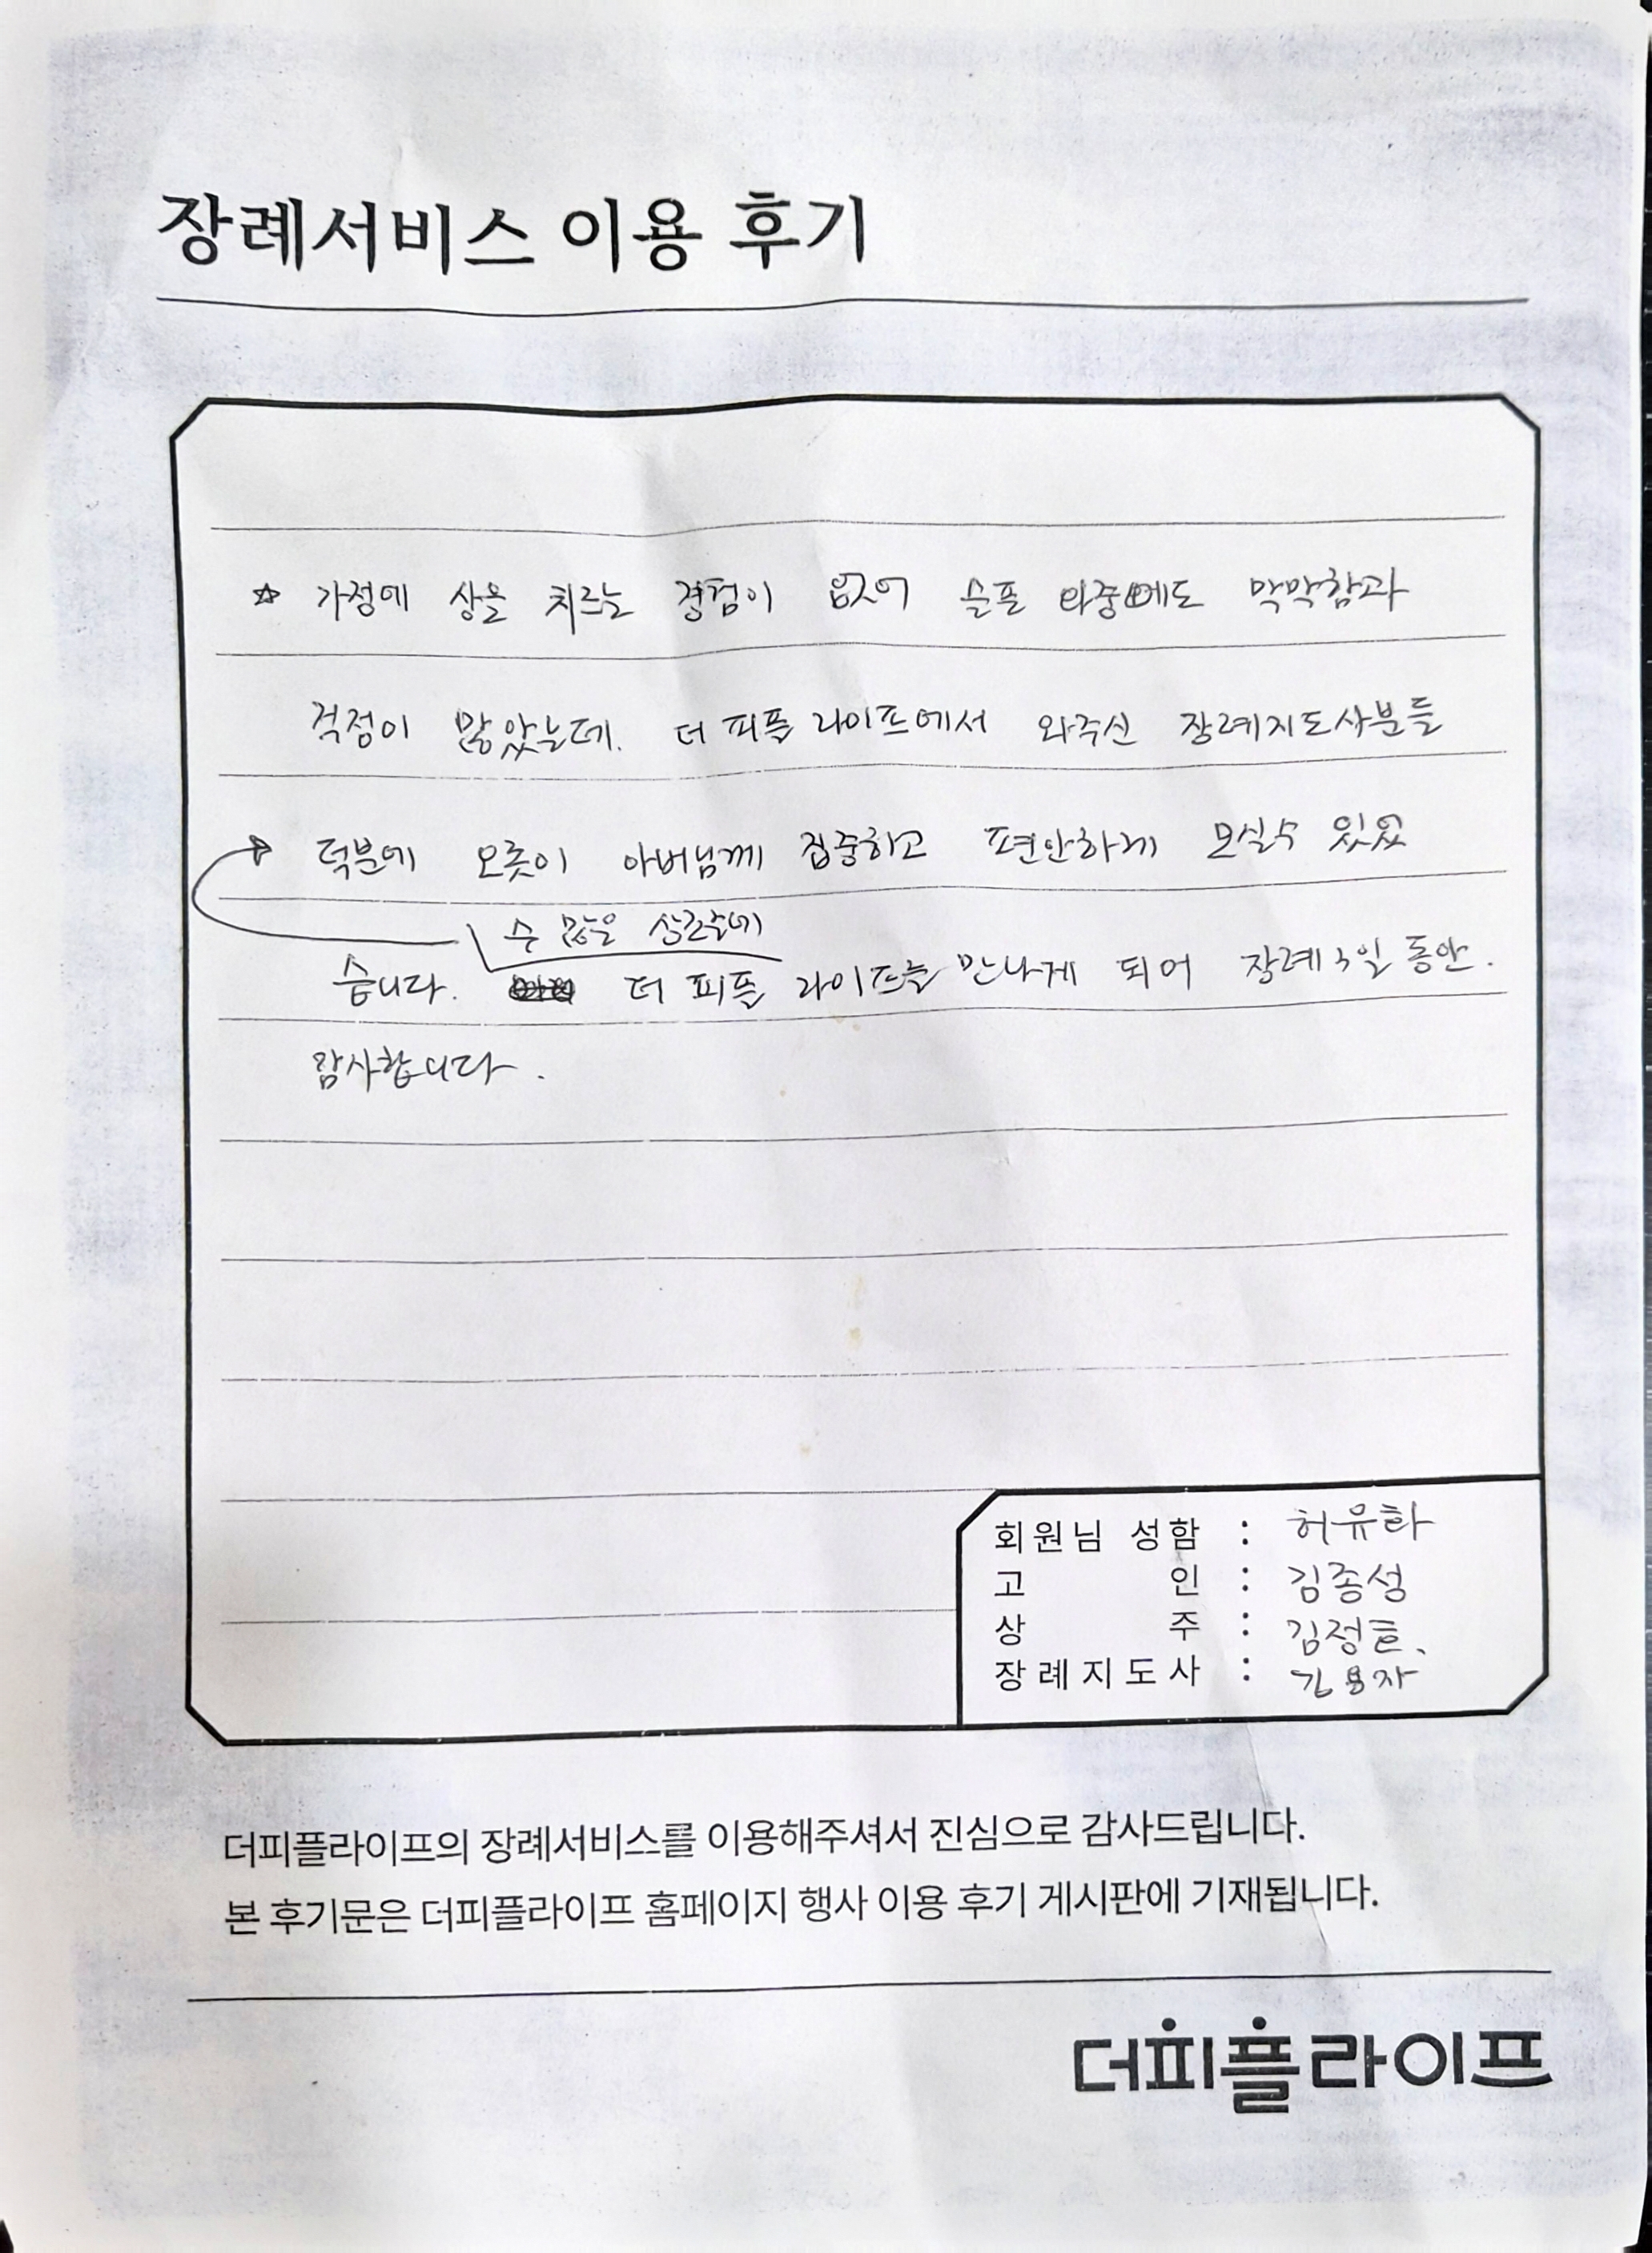 장례서비스 이용 후기
☆ 가정에 상을 치르는 경험이 없어 슬픈 와중에도 막막함과
걱정이 많았는데. 더 피플 라이프에서 와주신 장례지도사분들
덕분에 오롯이 아버님께 집중하고 편안하게 모실수 있었
수 많은 상조중에
습니다. 더 피플 라이프를 만나게 되어 장례 3일 동안.
감사합니다.
회원님 성함 : 허유화
고 인 : 김종성
상 주 :
장례지도사 : 김용자
더피플라이프의 장례서비스를 이용해주셔서 진심으로 감사드립니다.
본 후기문은 더피플라이프 홈페이지 행사 이용 후기 게시판에 기재됩니다.
더피플라이프